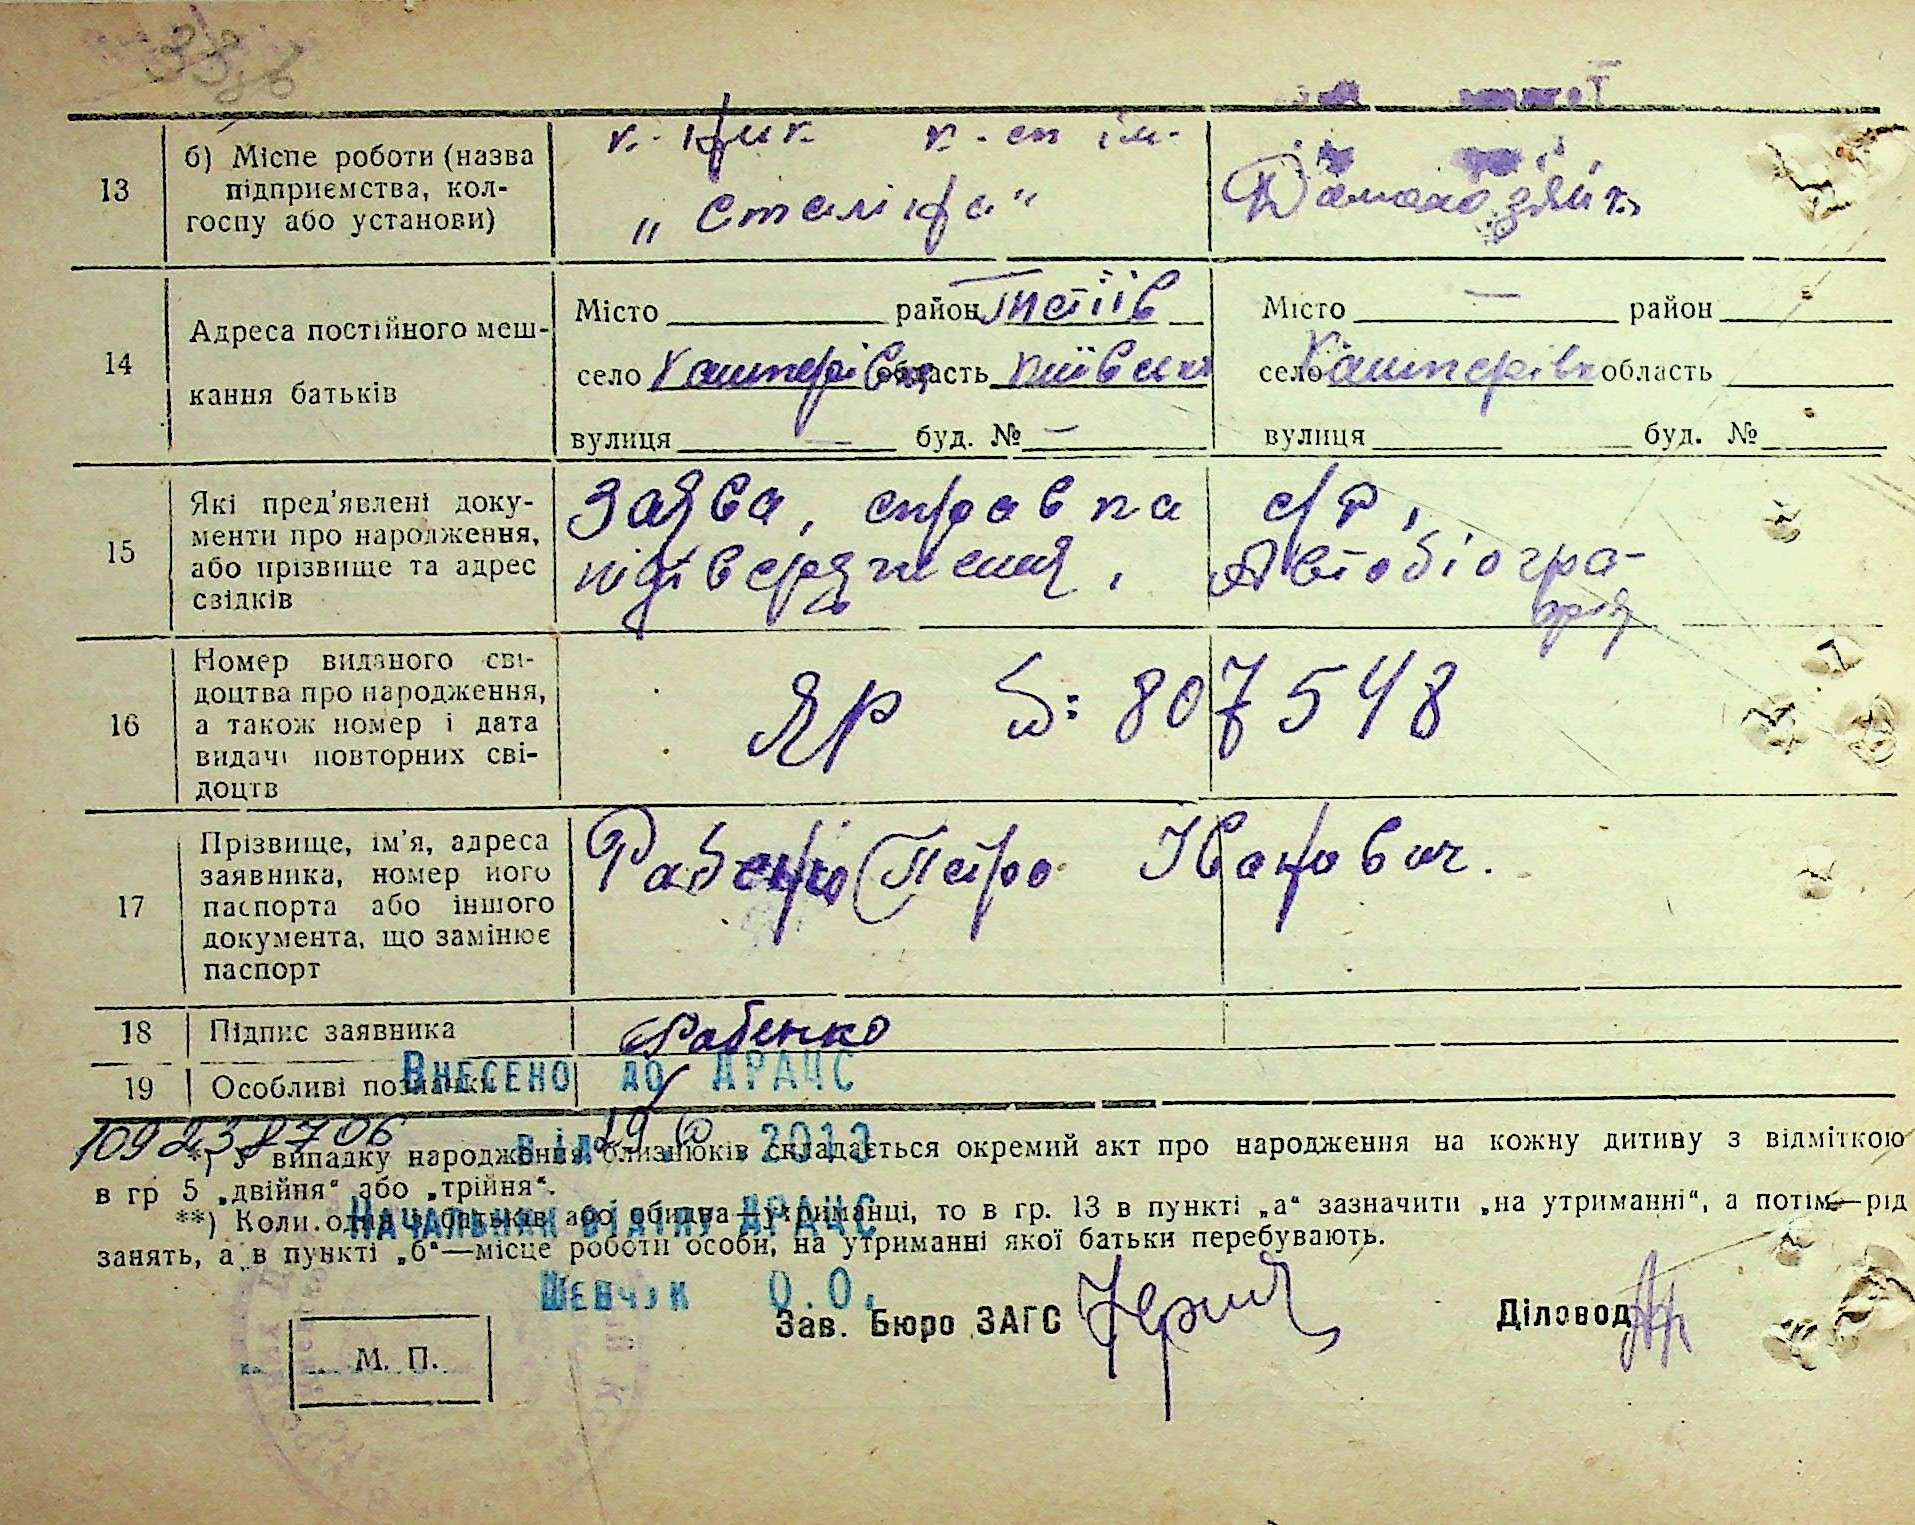 13
б) Місце роботи (назва
підприємства, кол-
госпу або установи)
к-сп ім.
„Сталіна"
14
Адреса постійного меш-
кання батьків
Місто район Тетіїв
село Кашперівка область Київська
вулиця — буд. № —
Місто — район
село Кашперівка область
вулиця буд. №
15
Які пред'явлені доку-
менти про народження,
або прізвище та адрес
свідків
Заява, справка с/р,
підтвердження, Автобіогра-
фія
16
Номер виданого сві-
доцтва про народження,
а також номер і дата
видачі повторних сві-
доцтв
ЯР №: 807548
17
Прізвище, ім'я, адреса
заявника, номер його
паспорта або іншого
документа, що замінює
паспорт
Рабенко Петро Іванович.
18
Підпис заявника
Рабенко
19
Особливі позначки
Внесено до ДРАЦС
від 2013
*) У випадку народження близнюків складається окремий акт про народження на кожну дитину з відміткою
в гр 5 „двійня" або „трійня".
**) Коли один з батьків або обидва—утриманці, то в гр. 13 в пункті „а" зазначити „на утриманні", а потім—рід
занять, а в пункті „б"—місце роботи особи, на утриманні якої батьки перебувають.
Начальник відділу ДРАЦС
Шевчук О.О.
Зав. Бюро ЗАГС
Діловод
М. П.